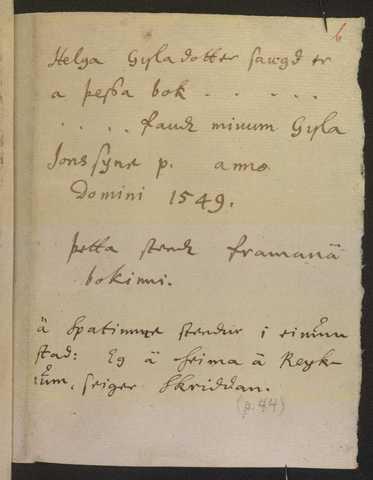 6
Helga Gysladotter sawgd er
a þessa bok . . . . .
. . . . faudr minum Gysla
Jonssyne p. anno
Domini 1549.
þetta stendr framaná
bokinni.
á Spatiunne stendur i einum
stad: Eg á heima á Reyk-
um, seiger Skriddan.
(p. 44)